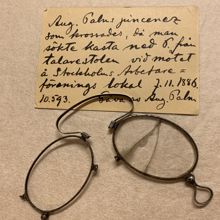 Aug. Palms pincenez
som krossades, då man
sökte kasta ned P. från
talarestolen vid mötet
å Stockholms Arbetare=
förenings lokal 7.11.1886.
10.593. Aug. Palm